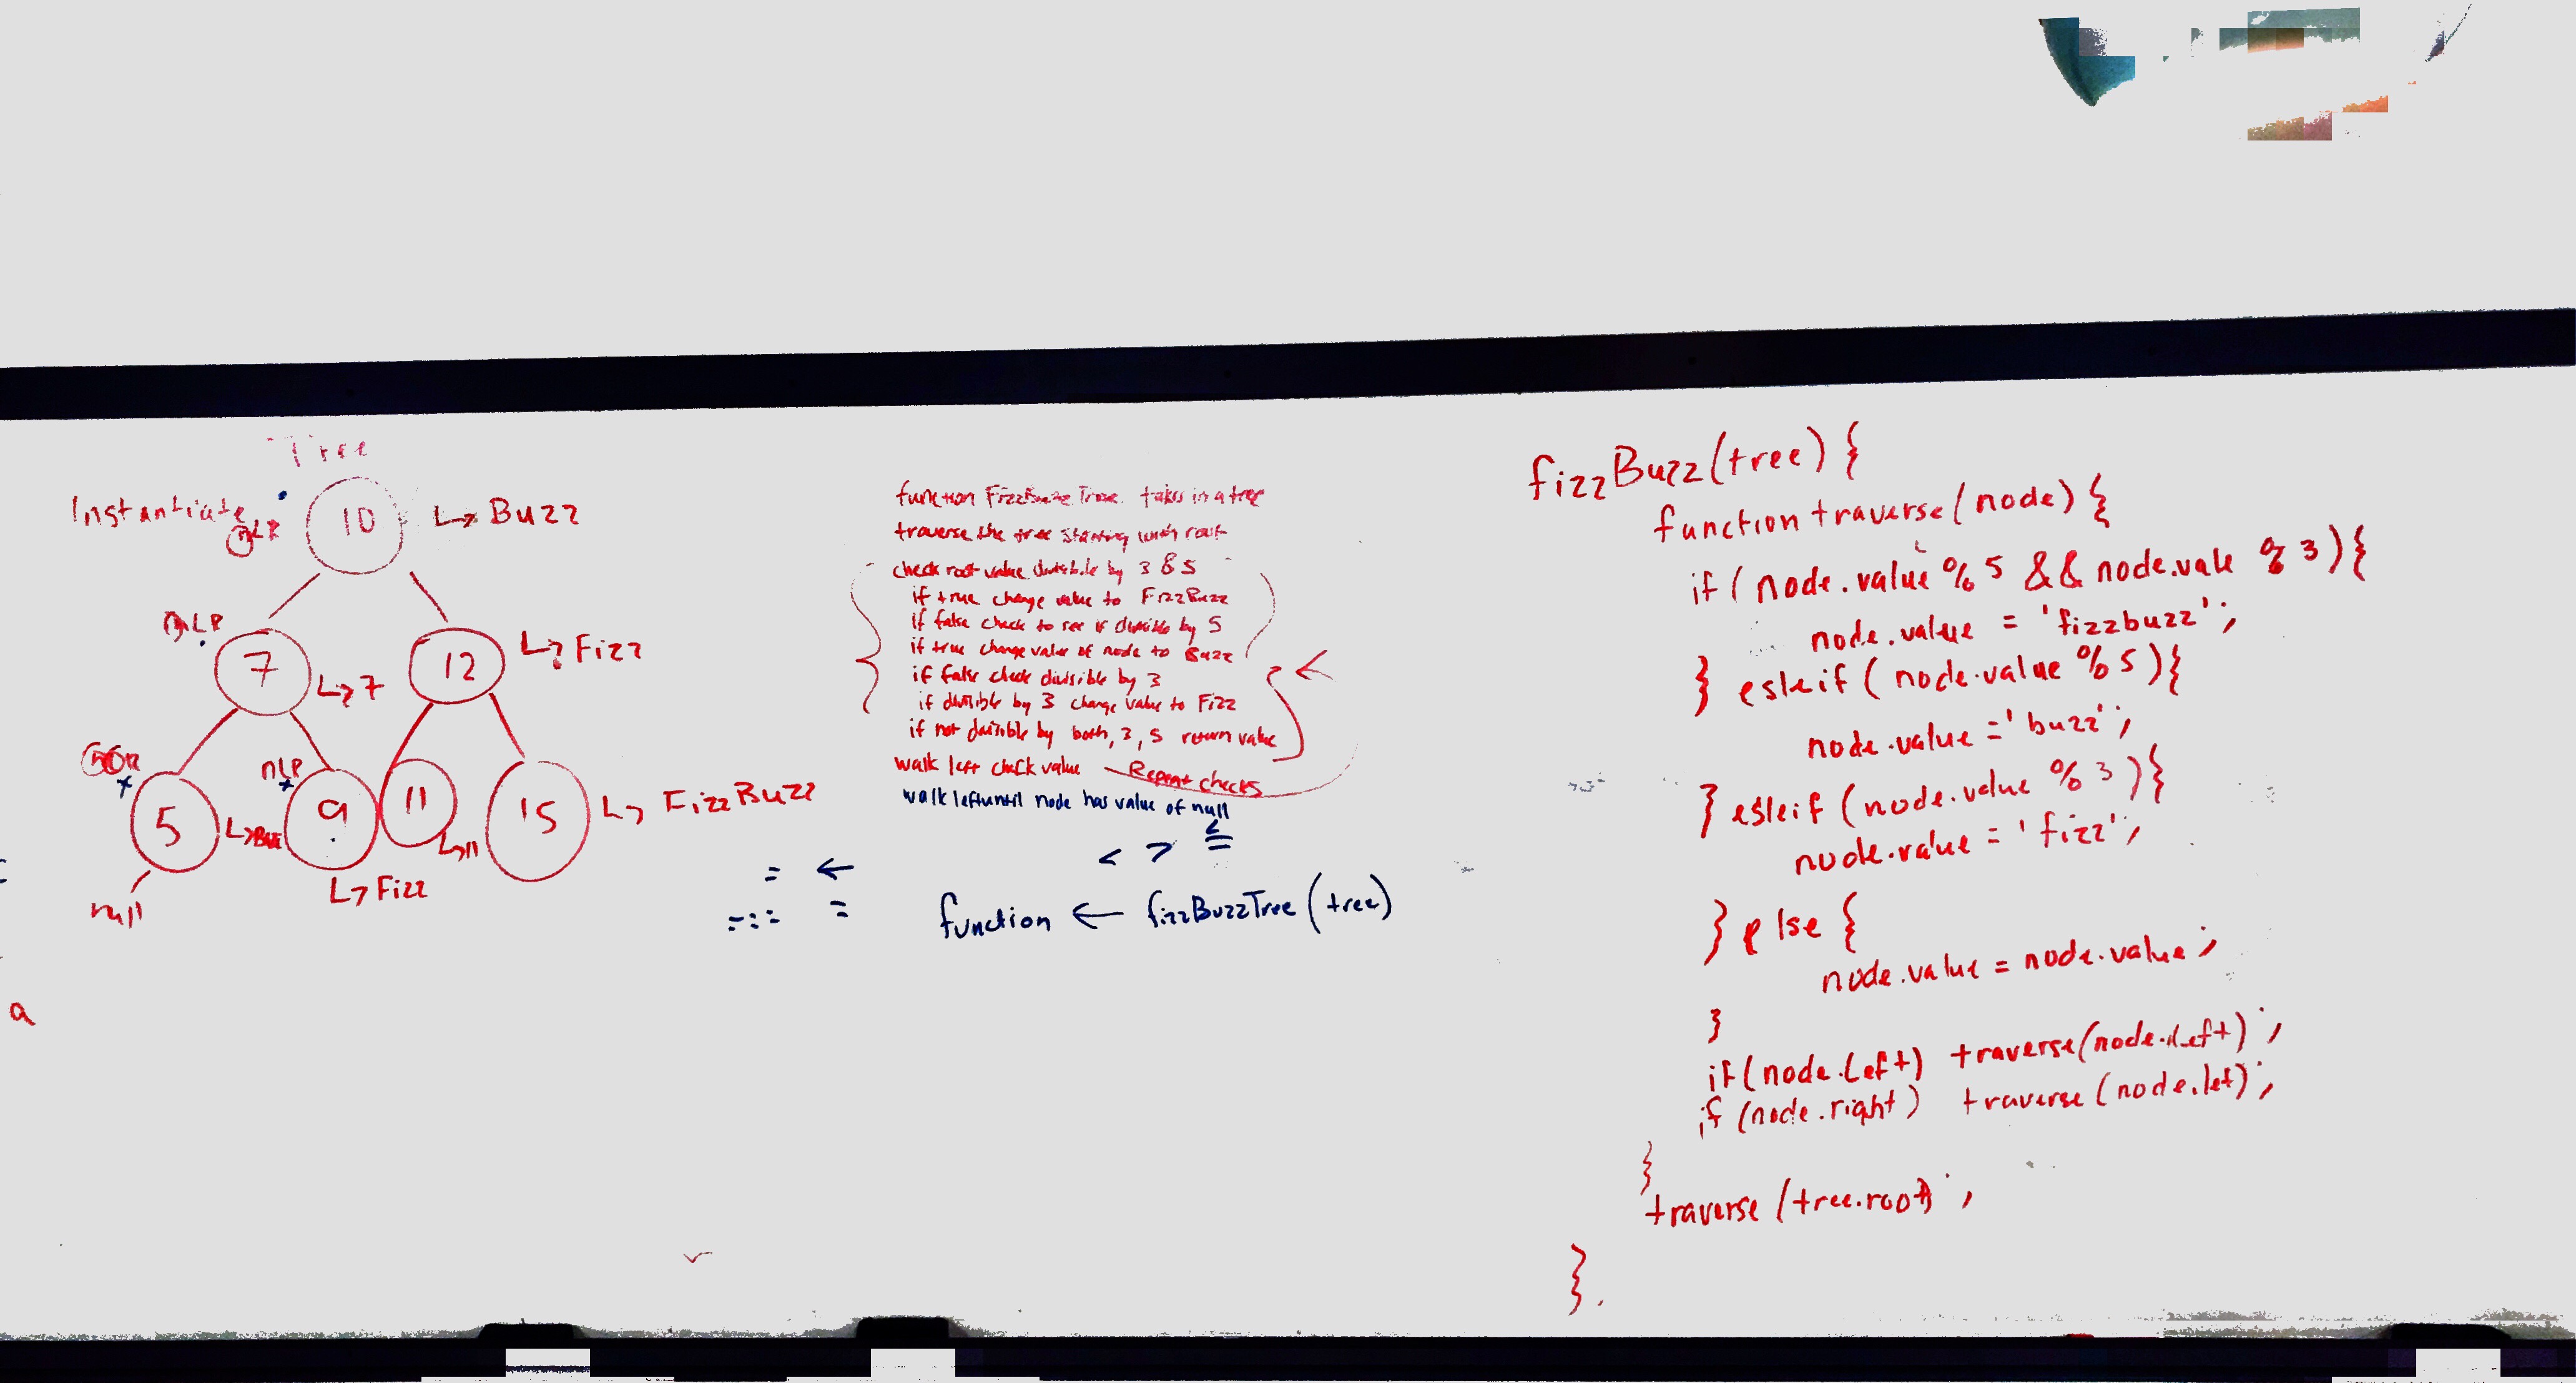 Tree
Instantiate
nLR
10
L→ Buzz
nLR
7
L→ 7
12
L→ Fizz
nLR
5
nLR
9
11
L→ 11
15
L→ FizzBuzz
L→ Fizz
null
a
function FizzBuzz Tree. takes in a tree
traverse the tree starting with root
check root value divisible by 3 & 5
if true change value to FizzBuzz
if false check to see if divisible by 5
if true change value of node to Buzz
if false check divisible by 3
if divisible by 3 change value to Fizz
if not divisible by both, 3, 5 return value
walk left check value Repeat checks
walk left until node has value of null
< > ≤
= ←
=
function ← fizzBuzzTree(tree)
fizzBuzz(tree) {
function traverse(node) {
if ( node.value % 5 && node.vale % 3) {
node.value = 'fizzbuzz';
} esleif ( node.value % 5) {
node.value = 'buzz';
} esleif ( node.value % 3 ) {
node.value = 'fizz';
} else {
node.value = node.value;
}
if(node.left) traverse(node.left);
if (node.right) traverse(node.let);
}
traverse (tree.root);
}.